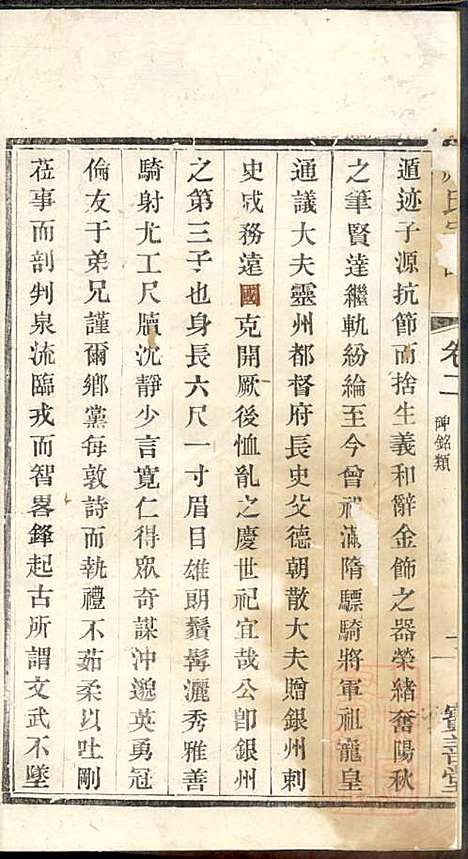 遁迹子源抗節而捨生義和辭金飾之器榮緒奮陽秋
之筆賢達繼軌紛綸至今曾祖瀛隋驃騎將軍祖龍皇
通議大夫靈州都督府長史父德朝散大夫贈銀州刺
史成務遠國克開厥後恤亂之慶世祀宜哉公卽銀州
之第三子也身長六尺一寸眉目雄朗鬚髯灑秀雅善
騎射尤工尺牘沈靜少言寬仁得眾奇謀沖邈英勇冠
倫友于弟兄謹爾鄉黨每敦詩而執禮不茹柔以吐剛
莅事而剖判泉流臨戎而智畧鋒起古所謂文武不墜
氏
卷二
碑銘類
寶善堂